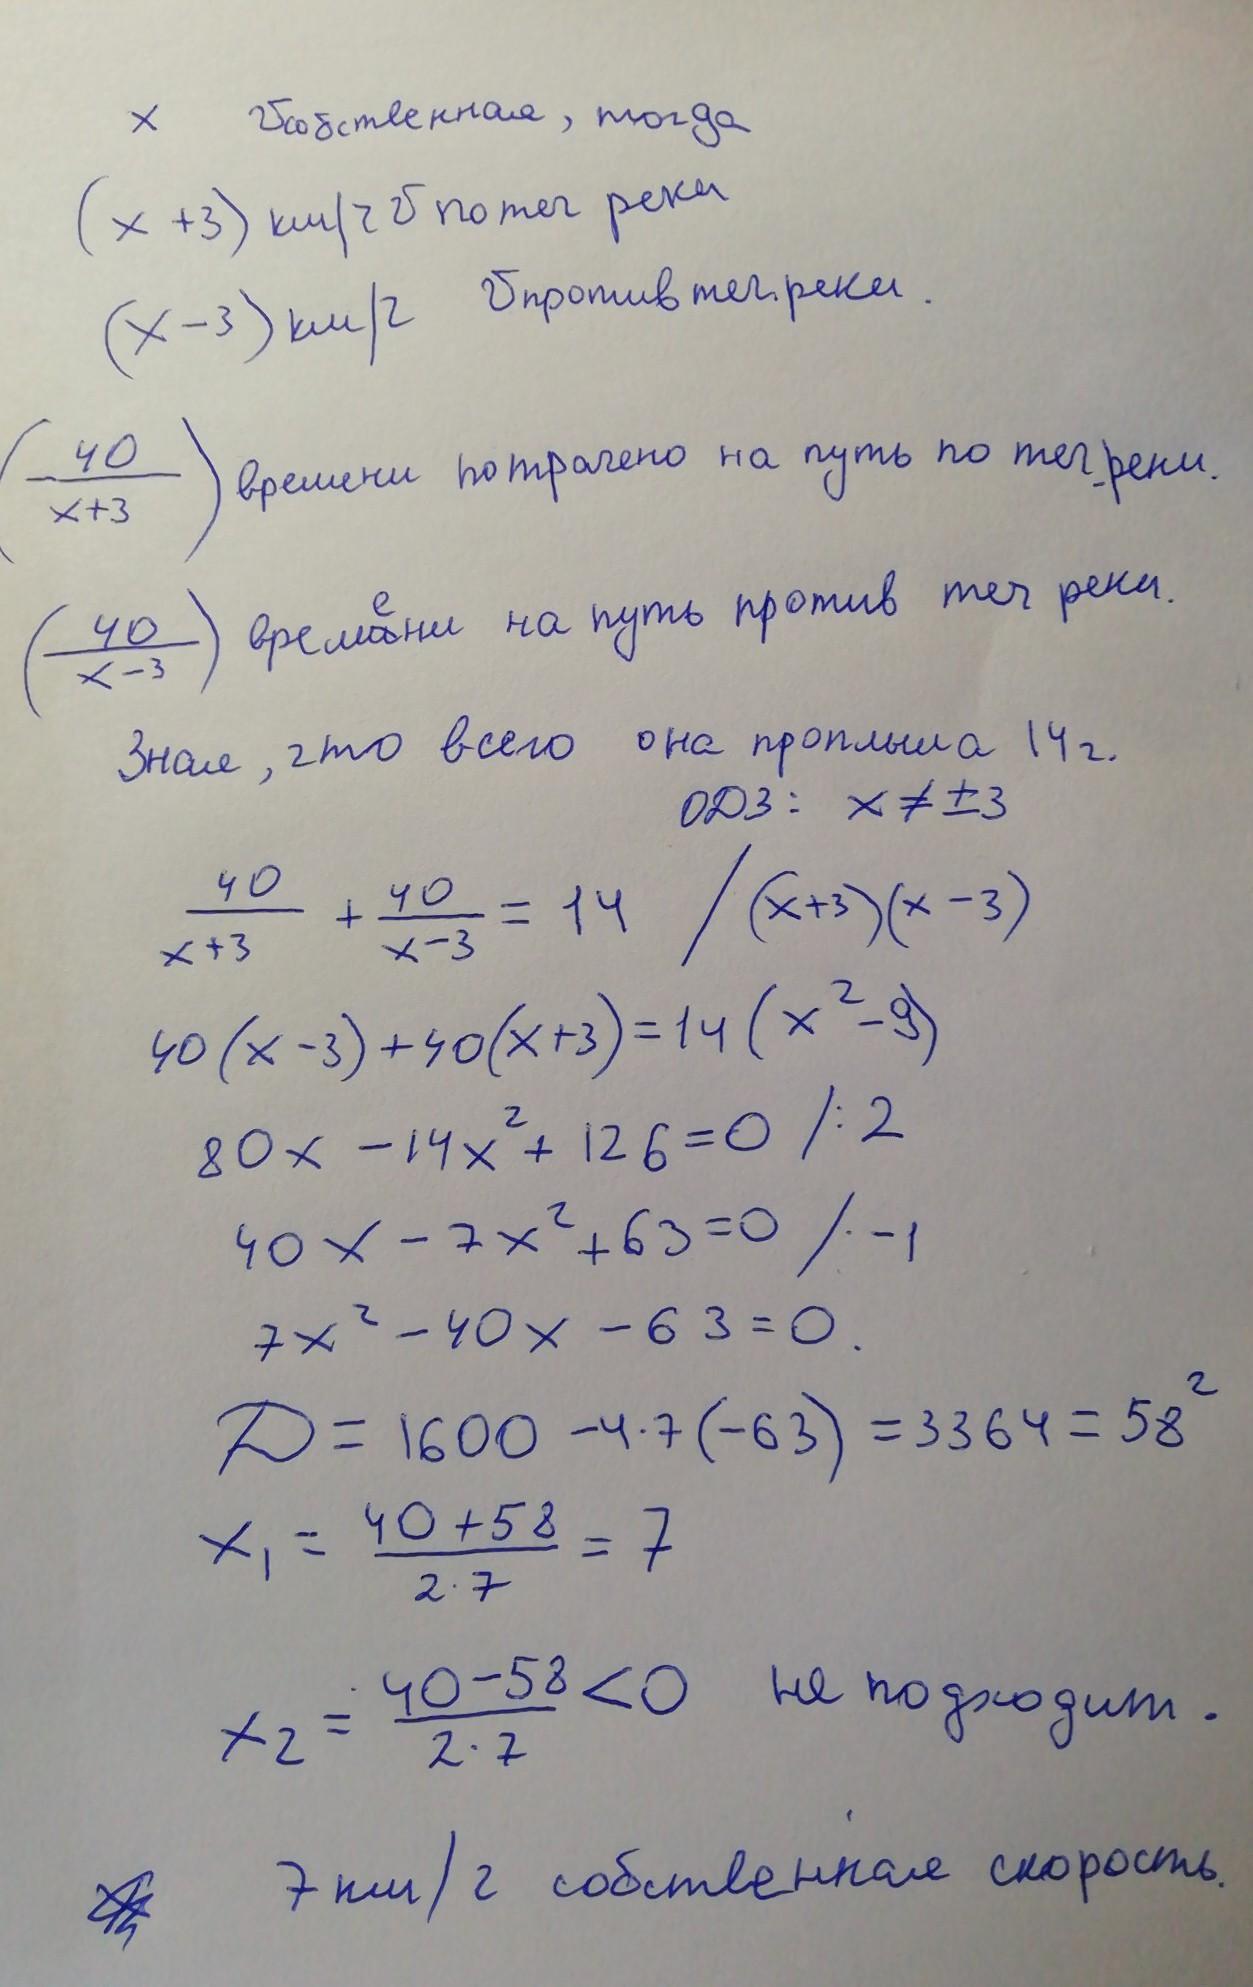 x Vсобственная, тогда
(x+3) км/ч V по теч реки
(x-3) км/ч V против теч. реки.
(40/(x+3)) времени потрачено на путь по теч. реки.
(40/(x-3)) времени на путь против теч реки.
Зная, что всего она проплыла 14 ч.
ОДЗ: x ≠ ±3
40/(x+3) + 40/(x-3) = 14 /(x+3)(x-3)
40(x-3)+40(x+3)=14(x²-9)
80x -14x²+ 126=0 /:2
40x -7x²+63=0 /·-1
7x²-40x-63=0.
D = 1600 -4·7(-63) = 3364 = 58²
x₁ = (40+58)/(2·7) = 7
x₂ = (40-58)/(2·7) <0 не подходит.
7 км/ч собственная скорость.